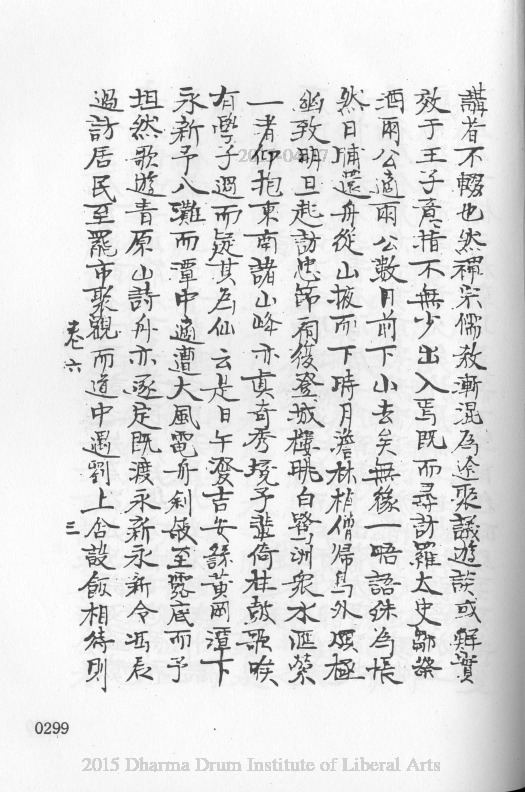 講者不輟也然禪宗儒教漸混為途衆議遊談或鮮實
效于王子意指不無少出入焉既而尋訪羅太史鄒祭
酒兩公適兩公數日前下小去矣無緣一晤語殊為悵
然日晡還舟從山掖而下時月澹林梢僧歸鳥外頗極
幽致明旦起訪忠節祠復登城樓眺白鷺洲衆水匯縈
一者仰抱東南諸山峰亦真奇秀境予輩倚柱鼓歌唉
有學子過而疑其為仙云是日午發吉安繇黃岡潭下
永新予八灘而潭中適遭大風電舟剎破至霓底而予
坦然歌遊青原山詩舟亦逐定既渡永新永新令馮辰
過訪居民至罷市聚觀而道中遇劉上舍設飯相待則
卷六
三
0299
2015 Dharma Drum Institute of Liberal Arts